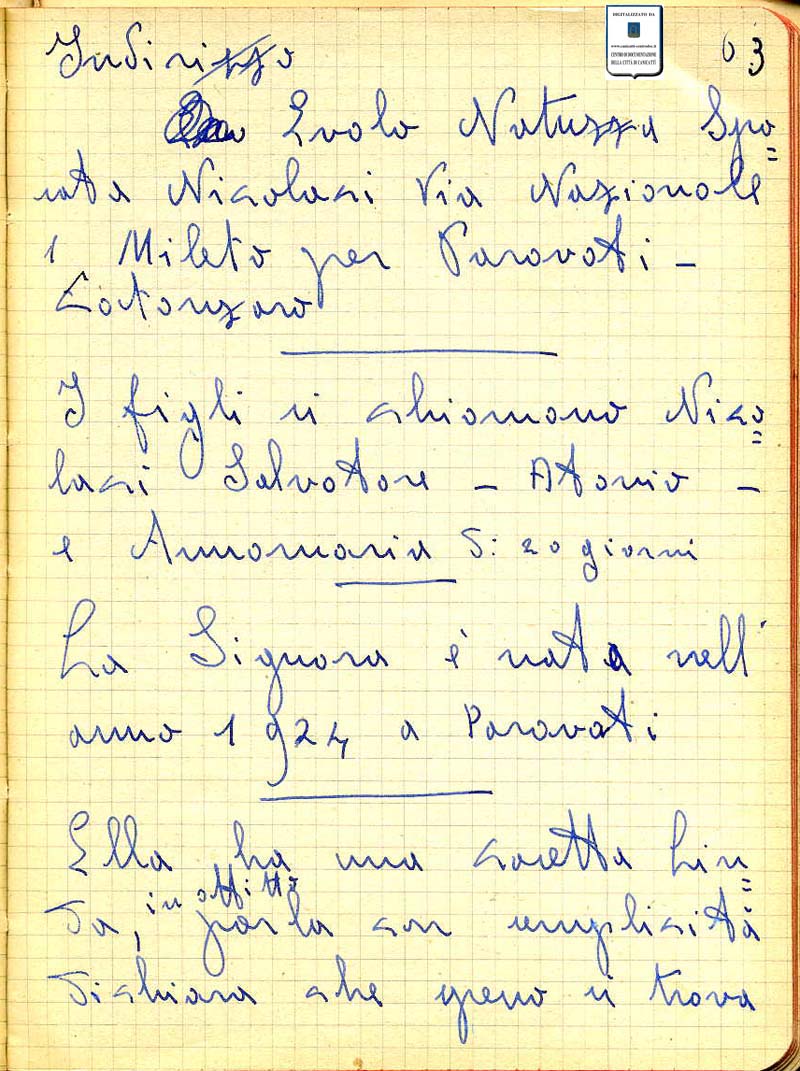 DIGITALIZZATO DA
www.canicatti-centrodoc.it
CENTRO DI DOCUMENTAZIONE
DELLA CITTÀ DI CANICATTÌ
63
Indirizzo
Evolo Natuzza Spo=
sata Nicolaci Via Nazionale
1 Mileto per Paravati –
Catanzaro
I figli si chiamano Nico=
laci Salvatore – Atonio –
e Annamaria di 20 giorni
La Signora è nata nell'
anno 1924 a Paravati
Ella ha una casetta Lin=
da, in affitto parla con semplicità
dichiara che spesso si trova